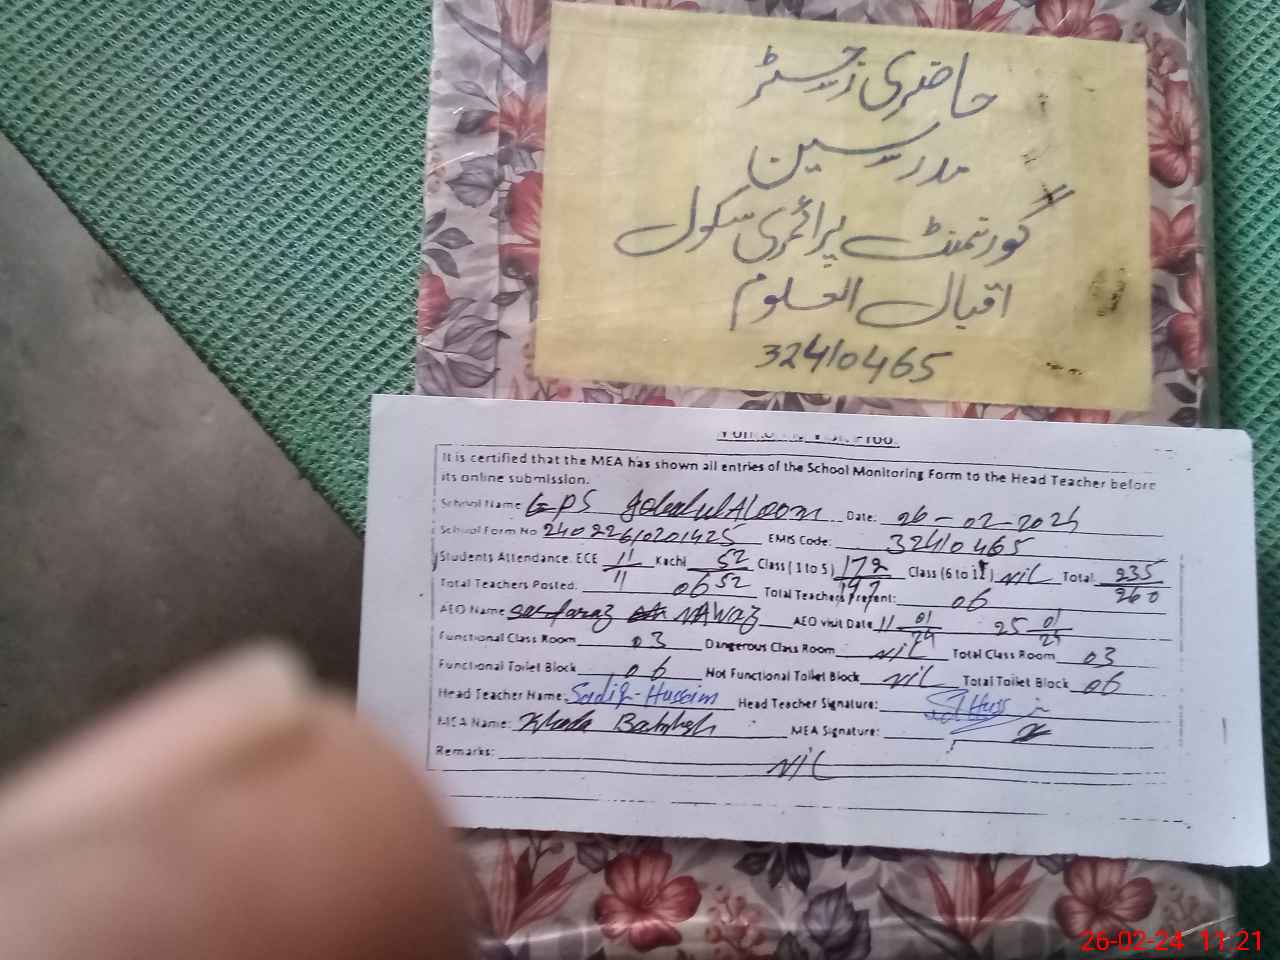 حاضری رجسٹر
مدرسین
گورنمنٹ پرائمری سکول
اقبال العلوم
32410465
It is certified that the MEA has shown all entries of the School Monitoring Form to the Head Teacher before
its online submission.
School Name GPS Date: 26-02-2024
School Form No EMIS Code: 32410465
Students Attendance. ECE 11/11 Kachi 52/52 Class (1 to 5) 172/197 Class (6 to 12) NiL Total. 235/260
Total Teachers Posted. 06 Total Teachers Present: 06
AEO Name Sarfaraz NAWaz AEO visit Date 11 01/24 25 01/24
Functional Class Room 03 Dangerous Class Room NiL Total Class Room 03
Functional Toilet Block 06 Not Functional Toilet Block NiL Total Toilet Block 06
Head Teacher Name: Sadiq-Hussain Head Teacher Signature:
MEA Name: MEA Signature:
Remarks: NiL
26-02-24 11:21